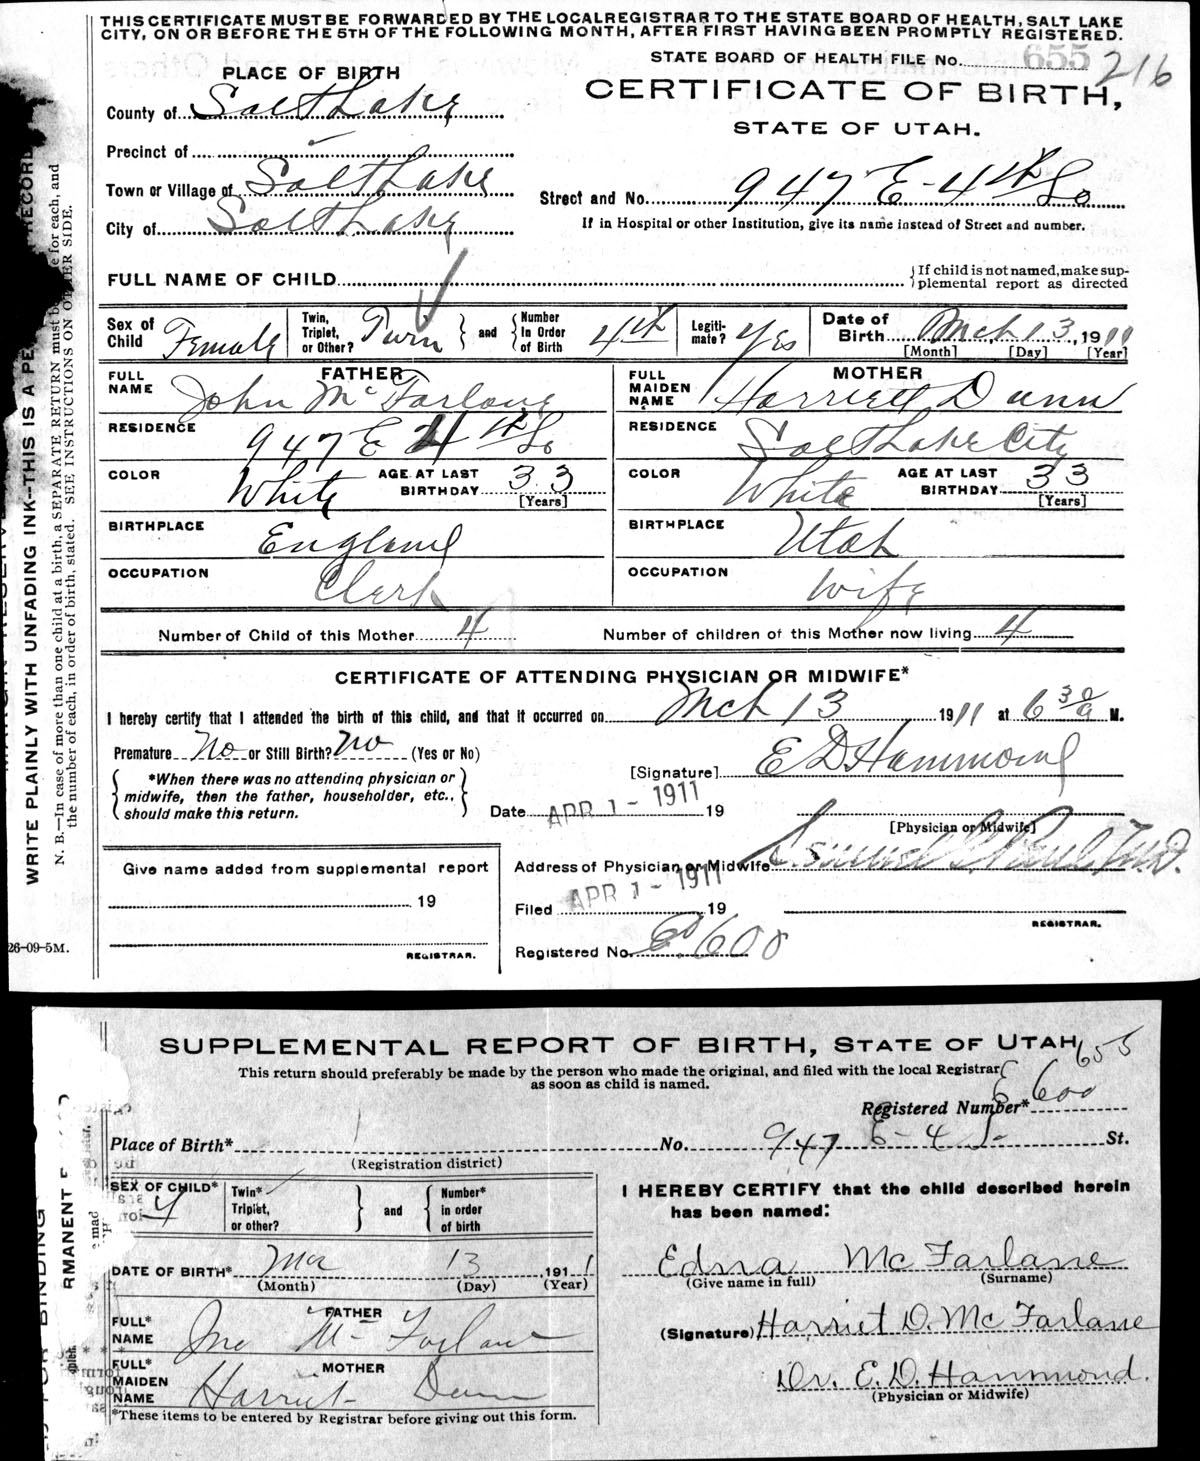 THIS CERTIFICATE MUST BE FORWARDED BY THE LOCAL REGISTRAR TO THE STATE BOARD OF HEALTH, SALT LAKE
CITY, ON OR BEFORE THE 5TH OF THE FOLLOWING MONTH, AFTER FIRST HAVING BEEN PROMPTLY REGISTERED.
STATE BOARD OF HEALTH FILE No. 655 216
PLACE OF BIRTH
CERTIFICATE OF BIRTH,
STATE OF UTAH.
County of Salt Lake
Precinct of
Town or Village of Salt Lake
Street and No. 947 E - 4th So
City of Salt Lake
If in Hospital or other Institution, give its name instead of Street and number.
FULL NAME OF CHILD
{If child is not named, make sup-
plemental report as directed
Sex of Child Female
Twin, Triplet, or Other? Twin } and { Number In Order of Birth 4th
Legiti-mate? Yes
Date of Birth Mch 13, 1911
[Month] [Day] [Year]
FATHER
FULL NAME John McFarlane
MOTHER
FULL MAIDEN NAME Harriett Dunn
RESIDENCE 947 E 4th So
RESIDENCE Salt Lake City
COLOR White AGE AT LAST BIRTHDAY 33 [Years]
COLOR White AGE AT LAST BIRTHDAY 33 [Years]
BIRTHPLACE England
BIRTHPLACE Utah
OCCUPATION Clerk
OCCUPATION Wife
Number of Child of this Mother 4 Number of children of this Mother now living 4
CERTIFICATE OF ATTENDING PHYSICIAN OR MIDWIFE*
I hereby certify that I attended the birth of this child, and that it occurred on Mch 13 1911 at 6 30 a M.
Premature No or Still Birth? No (Yes or No)
{*When there was no attending physician or
midwife, then the father, householder, etc.,
should make this return.}
[Signature] E D Hammond
Date APR 1 - 1911 19
[Physician or Midwife]
Address of Physician or Midwife
Give name added from supplemental report
19
REGISTRAR.
Filed APR 1 - 1911 19
REGISTRAR.
Registered No. 600
26-09-5M.
WRITE PLAINLY WITH UNFADING INK--THIS IS A PE RECORD
N. B.—In case of more than one child at a birth, a SEPARATE RETURN must be for each, and
the number of each, in order of birth, stated. SEE INSTRUCTIONS ON OTHER SIDE.
SUPPLEMENTAL REPORT OF BIRTH, STATE OF UTAH 655
This return should preferably be made by the person who made the original, and filed with the local Registrar
as soon as child is named.
Registered Number* E 600
Place of Birth* No. 947 E - 4 S St.
(Registration district)
SEX OF CHILD*
Twin* Triplet, or other? } and { Number* in order of birth
I HEREBY CERTIFY that the child described herein
has been named:
DATE OF BIRTH* Mar 13 1911
(Month) (Day) (Year)
Edna McFarlane
(Give name in full) (Surname)
FATHER
FULL* NAME Jno McFarlane
(Signature) Harriet D. McFarlane
MOTHER
FULL* MAIDEN NAME Harriet Dunn
Dr. E. D. Hammond.
(Physician or Midwife)
*These items to be entered by Registrar before giving out this form.
RMANENT